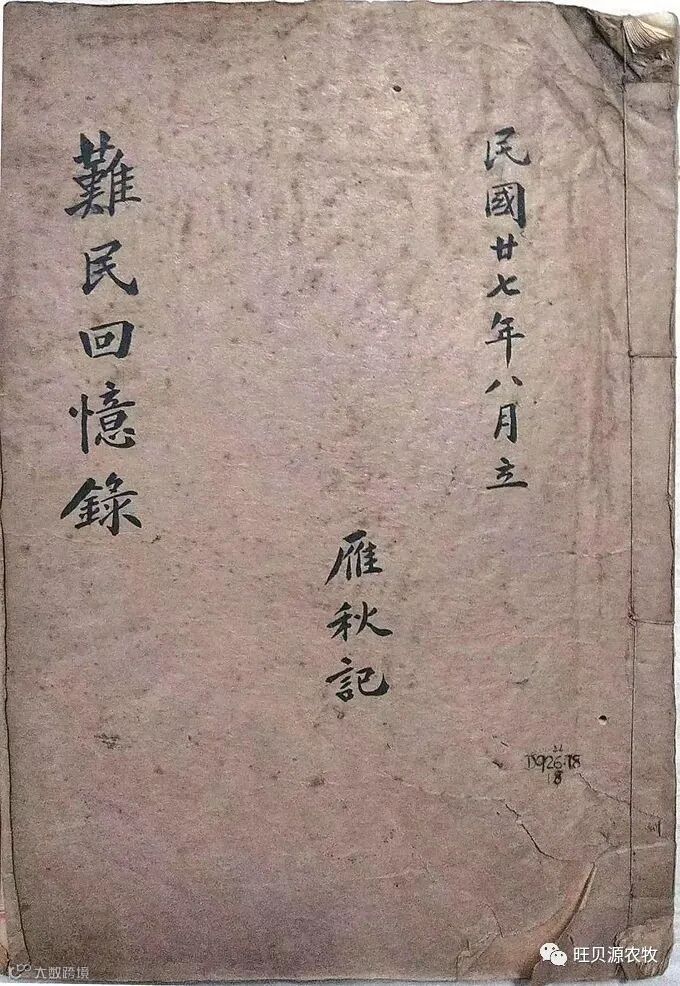 民國廿七年八月立
雁秋記
難民回憶錄
18
旺贝源农牧
大数跨境